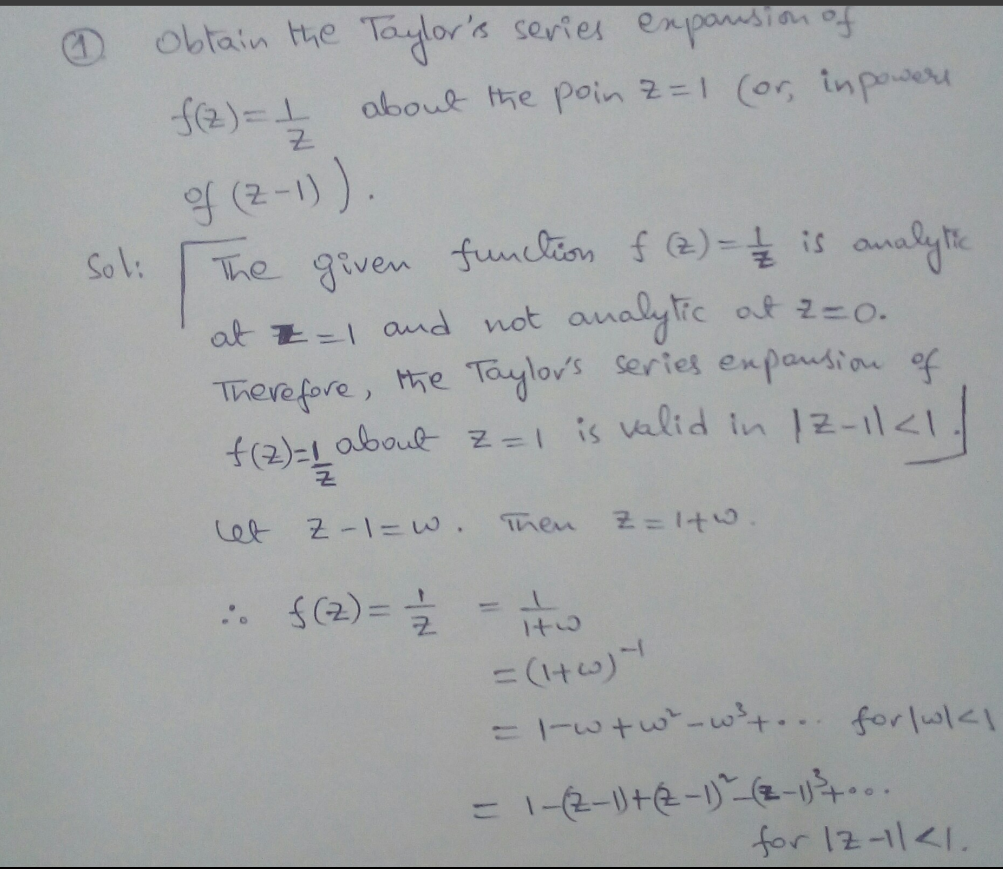 ① Obtain the Taylor's series expansion of
f(z)=1/z about the poin z=1 (or, in powers
of (z-1)).
Sol: The given function f(z)=1/z is analytic
at z=1 and not analytic at z=0.
Therefore, the Taylor's series expansion of
f(z)=1/z about z=1 is valid in |z-1|<1.
Let z-1=w. Then z=1+w.
∴ f(z)=1/z = 1/1+w
=(1+w)⁻¹
= 1-w+w²-w³+... for |w|<1
= 1-(z-1)+(z-1)²-(z-1)³+...
for |z-1|<1.